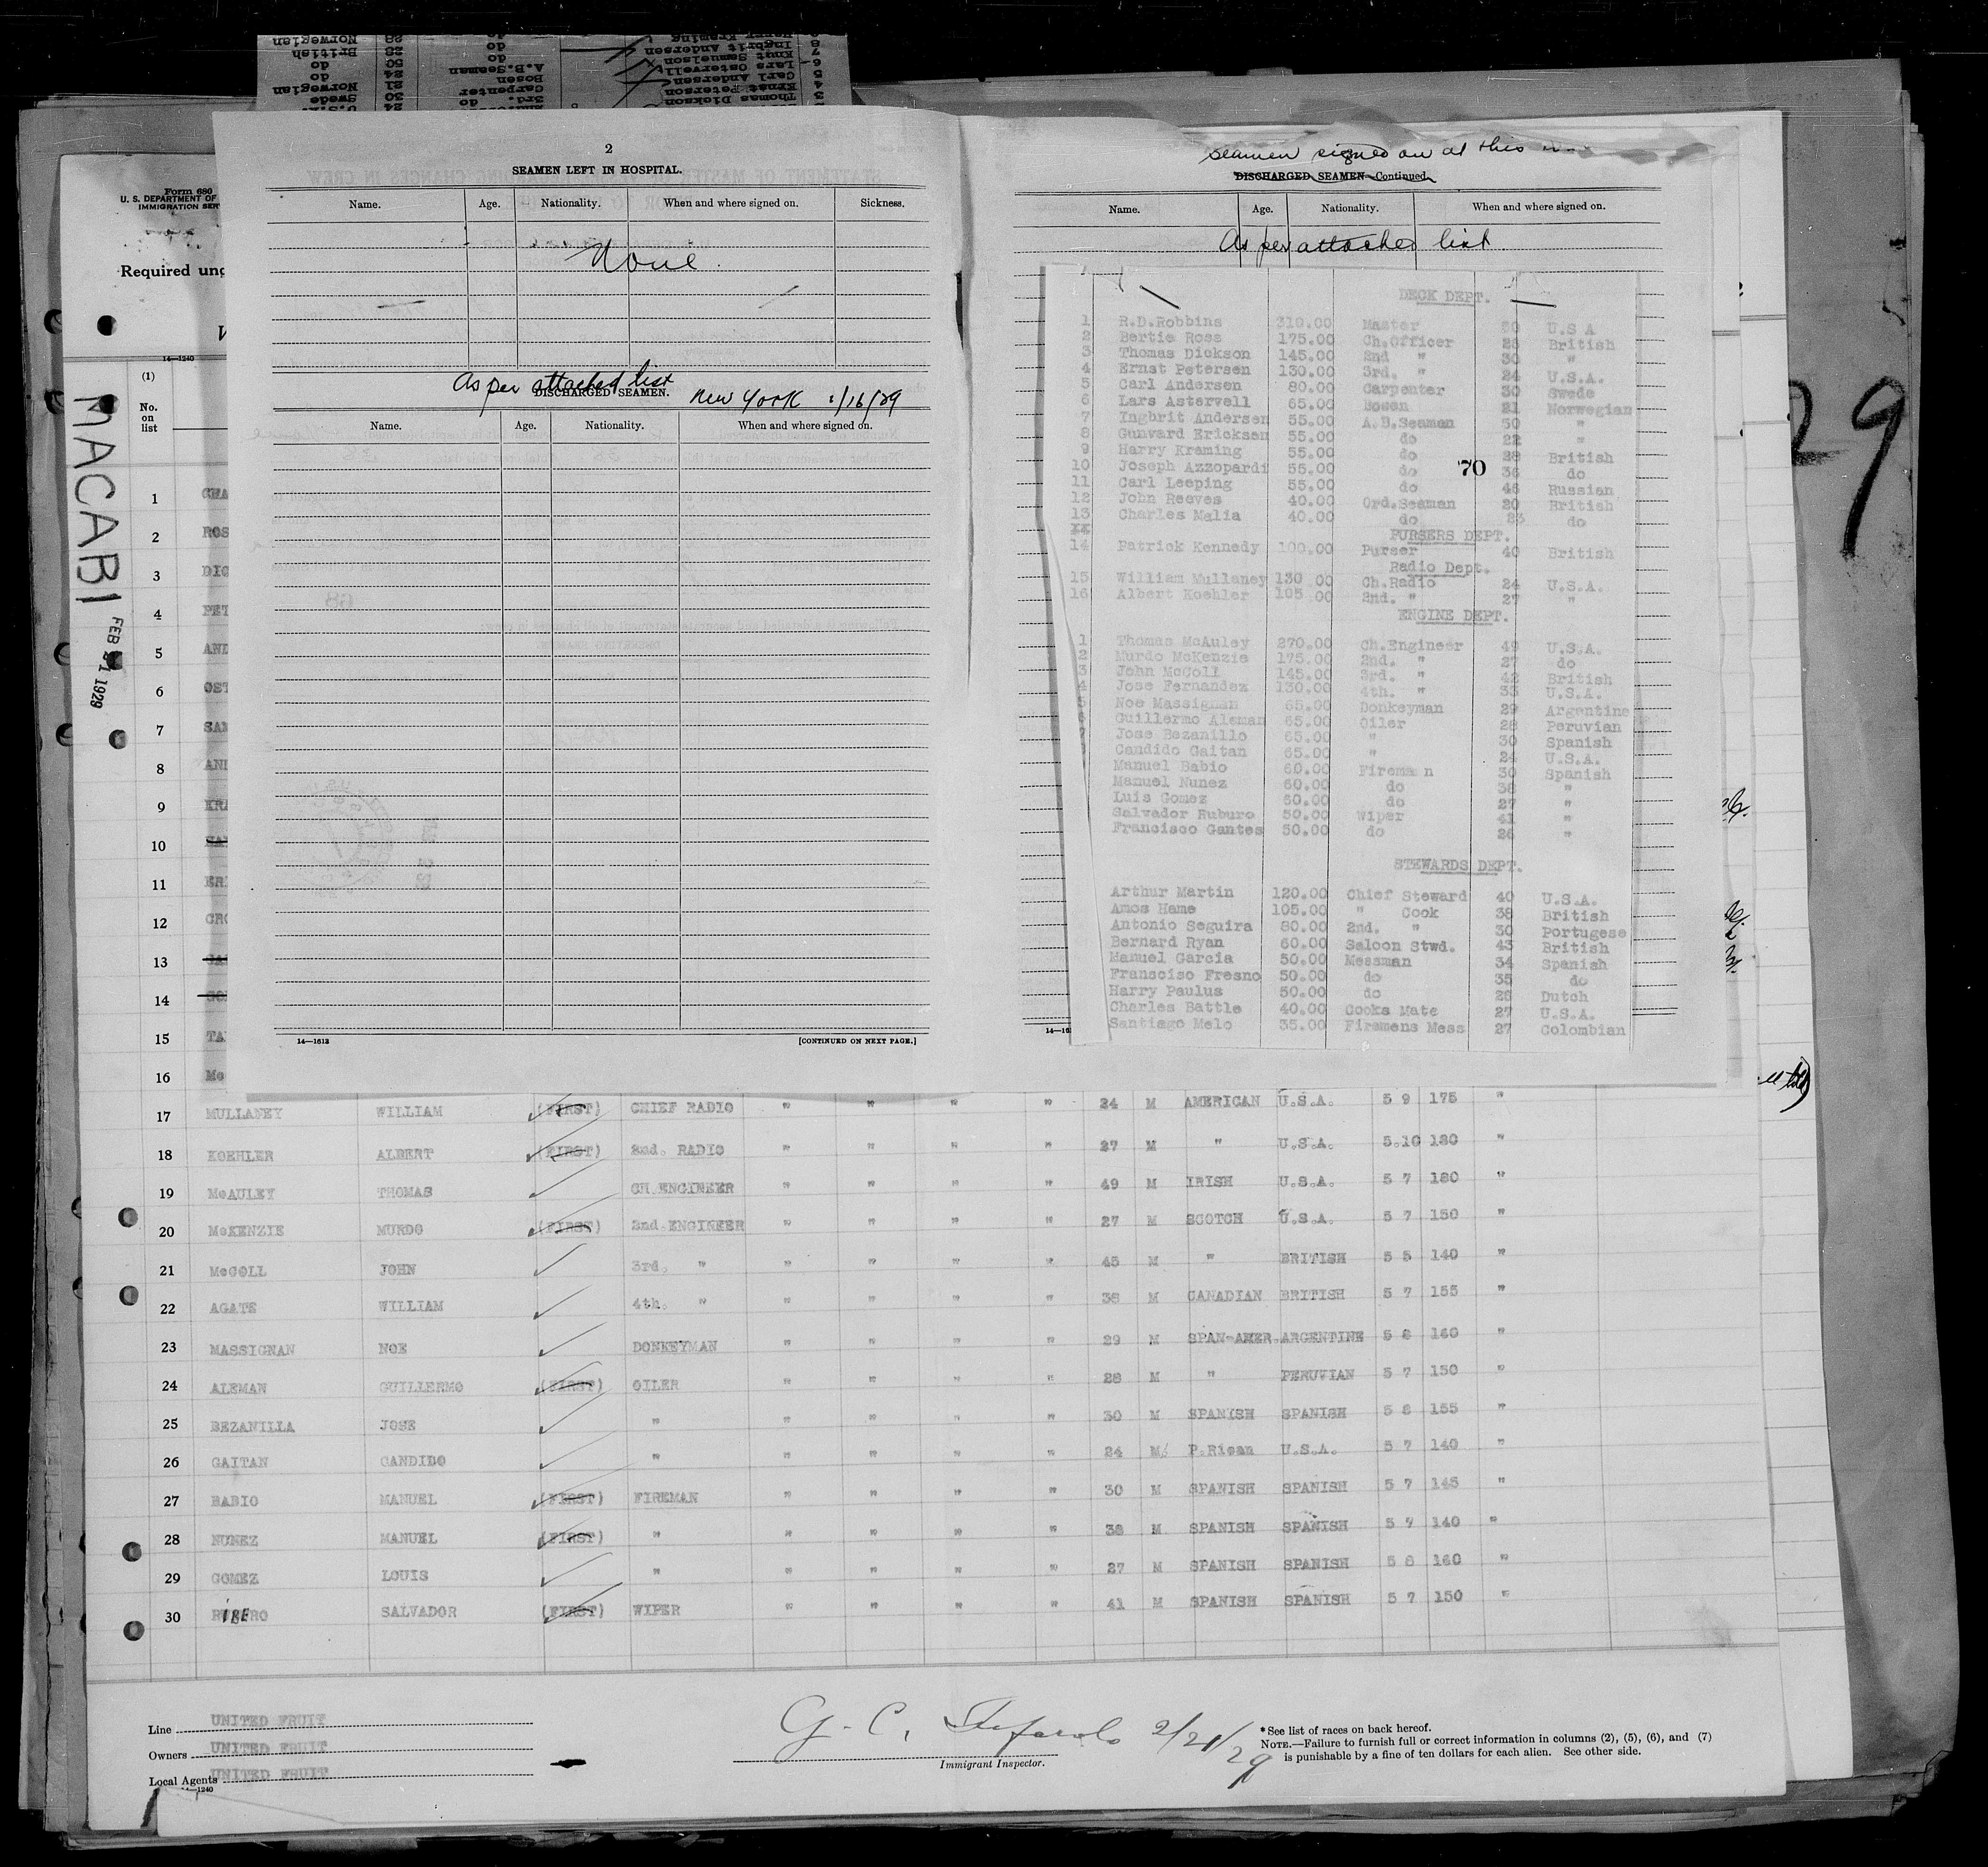 Form 680
U. S. DEPARTMENT OF
IMMIGRATION SER
Required und
14—1240
(1)
No.
on
list
MACABI
FEB 21 1929
2
SEAMEN LEFT IN HOSPITAL.
Name. Age. Nationality. When and where signed on. Sickness.
None.
As per attached list
DISCHARGED SEAMEN. New York 1/16/29
Name. Age. Nationality. When and where signed on.
14—1613 [CONTINUED ON NEXT PAGE.]
Seamen signed on at this
DISCHARGED SEAMEN—Continued.
Name. Age. Nationality. When and where signed on.
As per attached list
DECK DEPT.
1 R.D.Robbins 310.00 Master 50 U.S.A
2 Bertie Ross 175.00 Ch.Officer 28 British
3 Thomas Dickson 145.00 2nd " 30 "
4 Ernst Petersen 130.00 3rd. " 24 U.S.A.
5 Carl Andersen 80.00 Carpenter 30 Swede
6 Lars Astervell 65.00 Bosen 21 Norwegian
7 Yngbrit Andersen 55.00 A.B.Seaman 50 "
8 Gunvard Ericksen 55.00 do 22 "
9 Harry Kreming 55.00 do 28 British
10 Joseph Azzopardi 55.00 do 36 do
70
11 Carl Leeping 55.00 do 45 Russian
12 John Reeves 40.00 Ord.Seaman 20 British
13 Charles Melia 40.00 do 23 do
PURSERS DEPT.
14 Patrick Kennedy 100.00 Purser 40 British
Radio Dept.
15 William Mullaney 130.00 Ch.Radio 24 U.S.A.
16 Albert Koehler 105.00 2nd. " 27 "
ENGINE DEPT.
1 Thomas McAuley 270.00 Ch.Engineer 49 U.S.A.
2 Murdo McKenzie 175.00 2nd. " 27 do
3 John McColl 145.00 3rd. " 42 British
4 Jose Fernandez 130.00 4th. " 33 U.S.A.
5 Noe Massignan 65.00 Donkeyman 29 Argentine
6 Guillermo Aleman 65.00 Oiler 28 Peruvian
7 Jose Bezanillo 65.00 " 30 Spanish
Candido Gaitan 65.00 " 24 U.S.A.
Manuel Babio 60.00 Fireman 30 Spanish
Manuel Nunez 60.00 do 38 "
Luis Gomez 60.00 do 27 "
Salvador Ruburo 50.00 Wiper 41 "
Francisco Gantes 50.00 do 26 "
STEWARDS DEPT.
Arthur Martin 120.00 Chief Steward 40 U.S.A.
Amos Hame 105.00 " Cook 38 British
Antonio Seguira 80.00 2nd. " 30 Portugese
Bernard Ryan 60.00 Saloon Stwd. 43 British
Manuel Garcia 50.00 Messman 34 Spanish
Fransciso Fresno 50.00 do 35 do
Harry Paulus 50.00 do 26 Dutch
Charles Battle 40.00 Cooks Mate 27 U.S.A.
Santiago Melo 35.00 Firemens Mess 27 Colombian
29
1
2 ROS
3
4 PET
5 AND
6 OST
7 SAM
8
9 KRA
10
11
12
13
14
15
16 Mc
17 MULLANEY WILLIAM (FIRST) CHIEF RADIO " " " " 24 M AMERICAN U.S.A. 5 9 175 "
18 KOEHLER ALBERT (FIRST) 2nd. RADIO " " " " 27 M " U.S.A. 5.10 180 "
19 McAULEY THOMAS CH.ENGINEER " " " " 49 M IRISH U.S.A. 5 7 180 "
20 McKENZIE MURDO (FIRST) 2nd.ENGINEER " " " " 27 M SCOTCH U.S.A. 5 7 150 "
21 McCOLL JOHN 3rd. " " " " " 45 M " BRITISH 5 5 140 "
22 AGATE WILLIAM 4th. " " " " " 38 M CANADIAN BRITISH 5 7 155 "
23 MASSIGNAN NOE DONKEYMAN " " " " 29 M SPAN-AMER. ARGENTINE 5 8 160 "
24 ALEMAN GUILLERMO (FIRST) OILER " " " " 28 M " PERUVIAN 5 7 150 "
25 BEZANILLA JOSE " " " " " 30 M SPANISH SPANISH 5 8 155 "
26 GAITAN CANDIDO " " " " " 24 M P.Rican U.S.A. 5 7 140 "
27 BABIO MANUEL (FIRST) FIREMAN " " " " 30 M SPANISH SPANISH 5 7 145 "
28 NUNEZ MANUEL (FIRST) " " " " " 38 M SPANISH SPANISH 5 7 140 "
29 GOMEZ LOUIS " " " " " 27 M SPANISH SPANISH 5 8 160 "
30 RIBERO SALVADOR (FIRST) WIPER " " " " 41 M SPANISH SPANISH 5 7 150 "
Line UNITED FRUIT
Owners UNITED FRUIT
Local Agents UNITED FRUIT
14—1240
G. C. 2/21/29
Immigrant Inspector.
*See list of races on back hereof.
NOTE.—Failure to furnish full or correct information in columns (2), (5), (6), and (7)
is punishable by a fine of ten dollars for each alien. See other side.